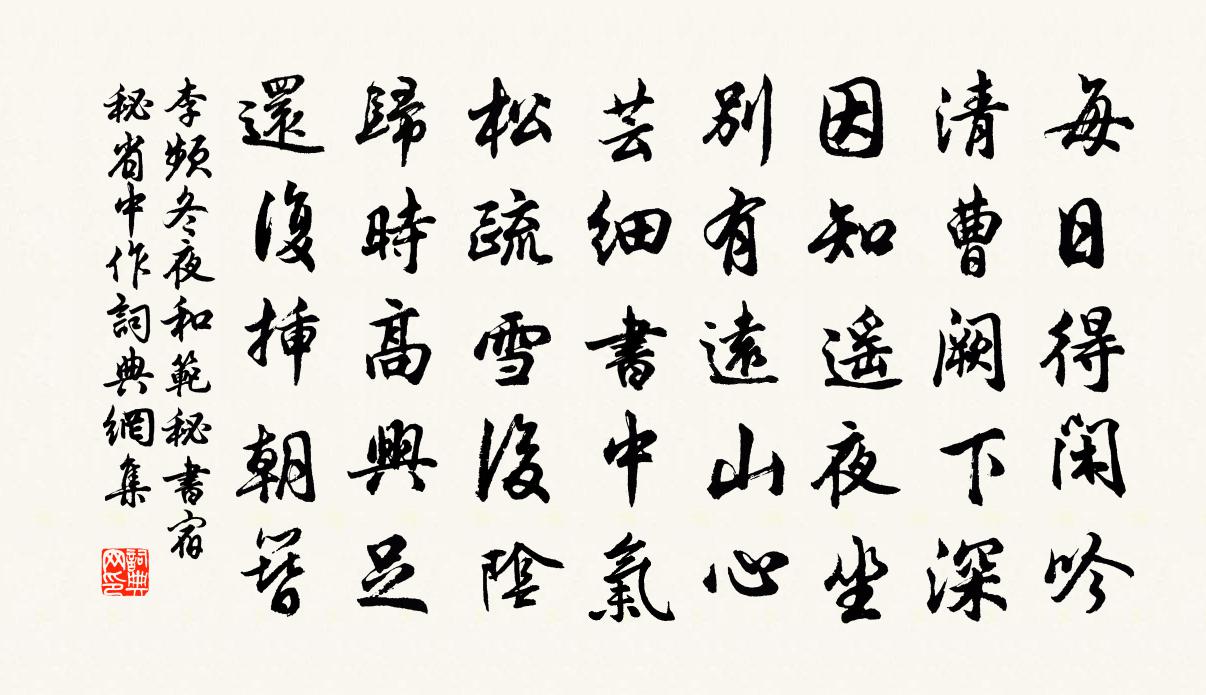 每日得閑吟
清曹闕下深
因知遥夜坐
別有遠山心
芸細書中氣
松疏雪後陰
歸時高興足
還復插朝簪
李頻冬夜和範秘書宿
秘省中作詞典網集
詞典
网印